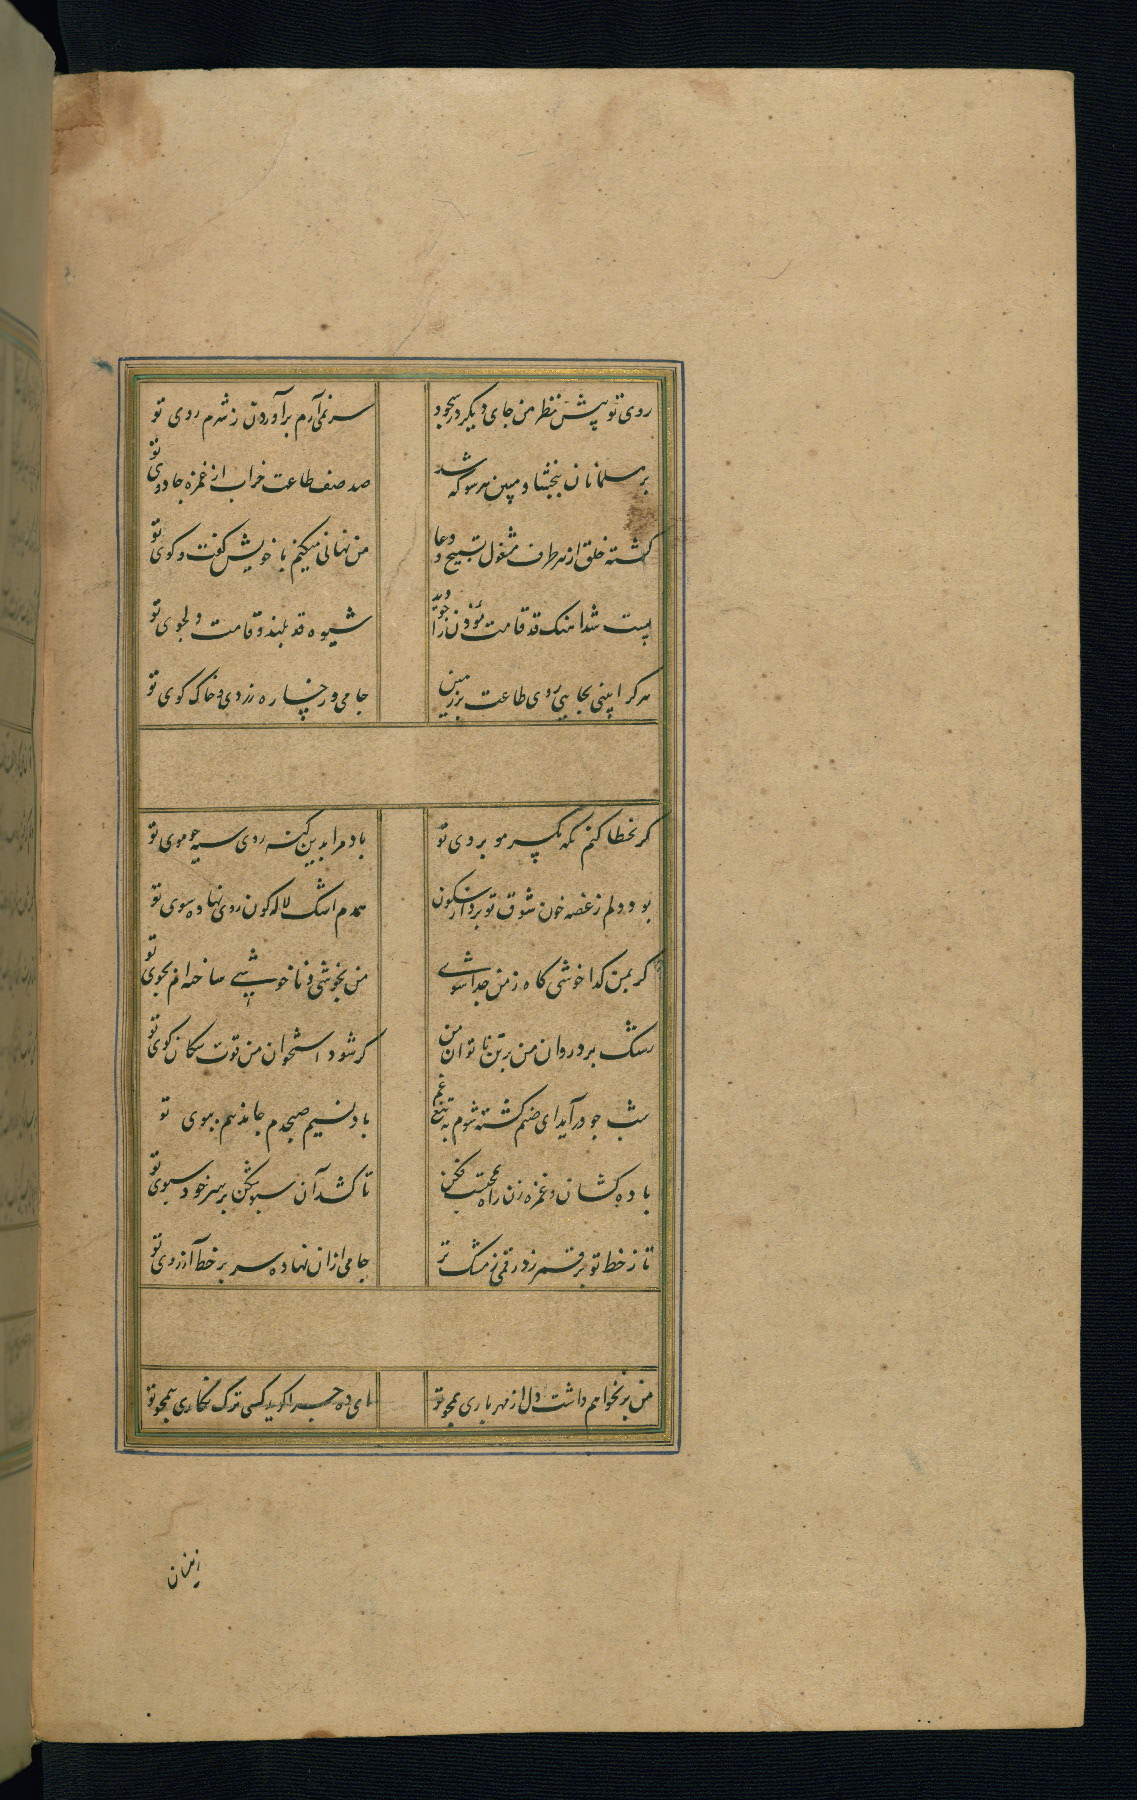 روی تو پیش نظر من جای دیگر در سجود
سر نمی‌آرم برآوردن ز شرم روی تو
بر مسلمانان ببخشا و مبین هر سو که شد
صد صف طاعت خراب از غمزه جادوی تو
گشته خلق از هر طرف مشغول تسبیح و دعا
من نهانی میکنم با خویش گفت و گوی تو
پست شد آهنگ قد قامت مؤذن را چو دید
شیوه قد بلند و قامت دلجوی تو
هر کرا بینی بجایی روی طاعت بر زمین
جامی و رخساره زردی و خاک کوی تو
گر بخطا کنم نگه یک سر مو بروی تو
باد مرا بدین گنه روی سیه چو موی تو
بود دلم ز غصه خون شوق تو برد ازو سکون
همدم اشک لاله گون روی نهاده سوی تو
گر بمن گدا خوشی گاه ز من جدا شوی
من بخوشی و ناخوشی ساخته‌ام بخوی تو
رشک برد روان من بر تن ناتوان من
گر شود استخوان من قوت سگان کوی تو
شب چو درآید ای صنم کشته شوم به تیغ غم
باد نسیم صبحدم جان دهدم ببوی تو
باده کشان و غمزه زن راه محتسب فکن
تا کشد آن سبو شکن بر سر خود سبوی تو
تا ز خط تو بر قمر زد رقمی ز مشک تر
جامی ازان نهاده سر بر خط آرزوی تو
من برنخواهم داشت دل از مهر یاری همچو تو
ای ده چرا گوید کسی ترک نگاری همچو تو